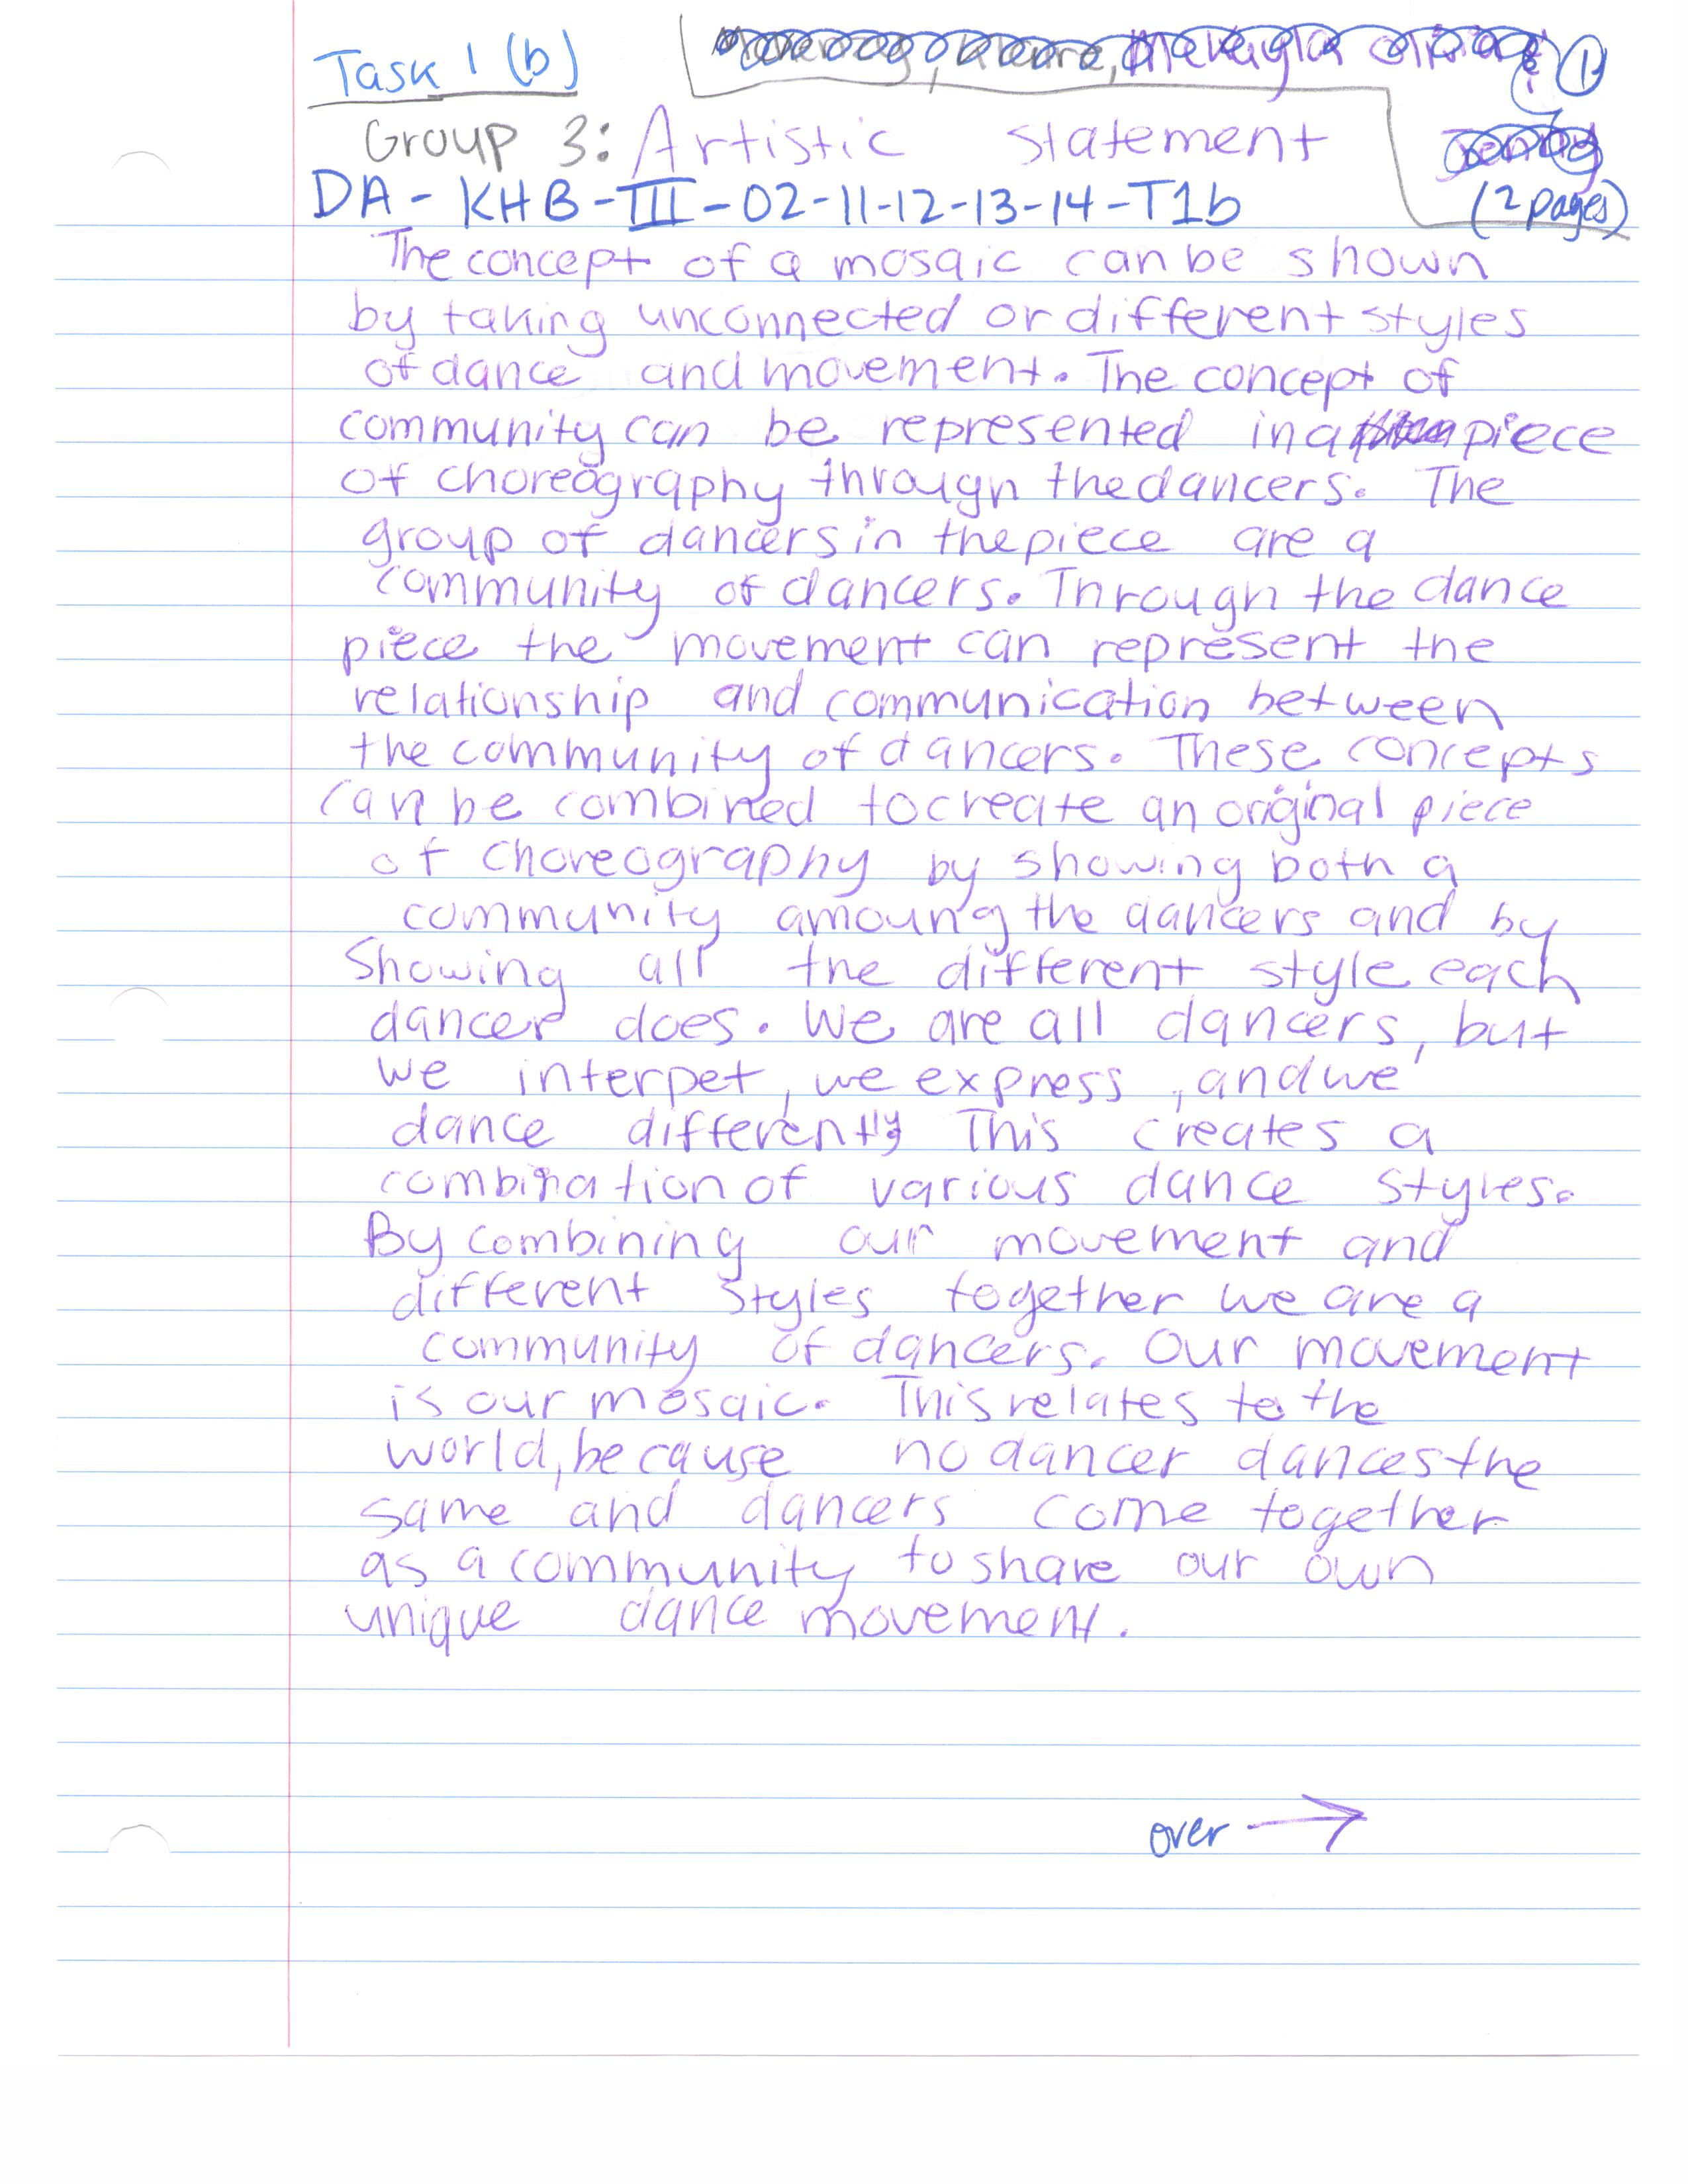 Task 1 (b)
1
Group 3: Artistic statement
DA - KHB - III - 02-11-12-13-14-T1b
(2 pages)
The concept of a mosaic can be shown
by taking unconnected or different styles
of dance and movement. The concept of
community can be represented in a piece
of choreography through the dancers. The
group of dancers in the piece are a
community of dancers. Through the dance
piece the movement can represent the
relationship and communication between
the community of dancers. These concepts
can be combined to create an original piece
of choreography by showing both a
community amoung the dancers and by
Showing all the different style each
dancer does. We are all dancers, but
we interpet, we express, and we
dance differently This creates a
combination of various dance styles.
By combining our movement and
different styles together we are a
community of dancers. Our movement
is our mosaic. This relates to the
world, because no dancer dances the
same and dancers come together
as a community to share our own
unique dance movement.
over →